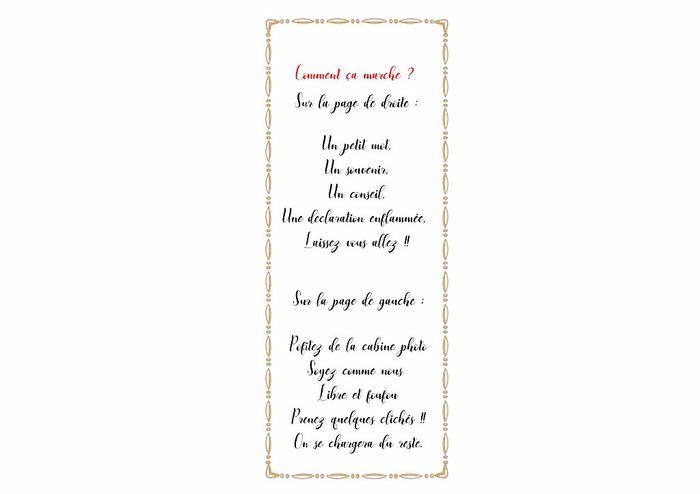 Comment ça marche ?
Sur la page de droite :
Un petit mot,
Un souvenir,
Un conseil,
Une declaration enflammée,
Laissez vous allez !!
Sur la page de gauche :
Pofitez de la cabine photo
Soyez comme nous
Libre et foufou
Prenez quelques clichés !!
On se chargera du reste.